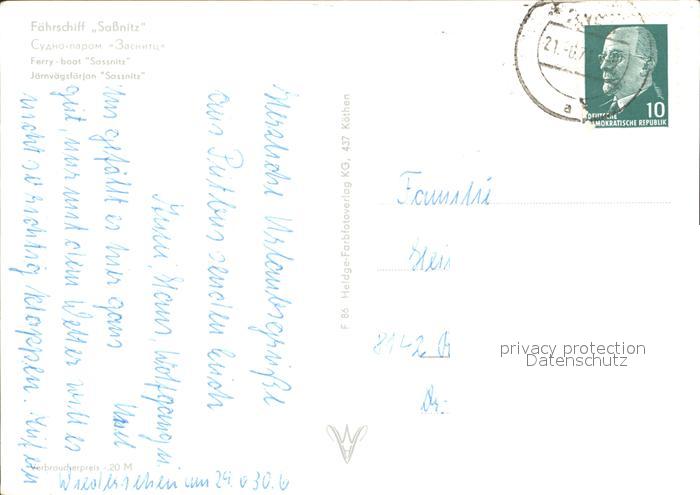 Fährschiff „Saßnitz"
Судно-паром «Засниц»
Ferry-boat "Sassnitz"
Järnvägsfärjan "Sassnitz"
Herzliche Urlaubsgrüße
aus Putbus senden Euch
Hans, Wolfgang u.
Uns gefällt es hier ganz
gut, nur mit dem Wetter will es
nicht so richtig klappen.
Wiedersehen am 29. o 30.6
Verbraucherpreis -.20 M
F 86 Heldge-Farbfotoverlag KG, 437 Köthen
21.
a
10
DEUTSCHE
DEMOKRATISCHE REPUBLIK
Familie
Hei
8142
Dr.
privacy protection
Datenschutz